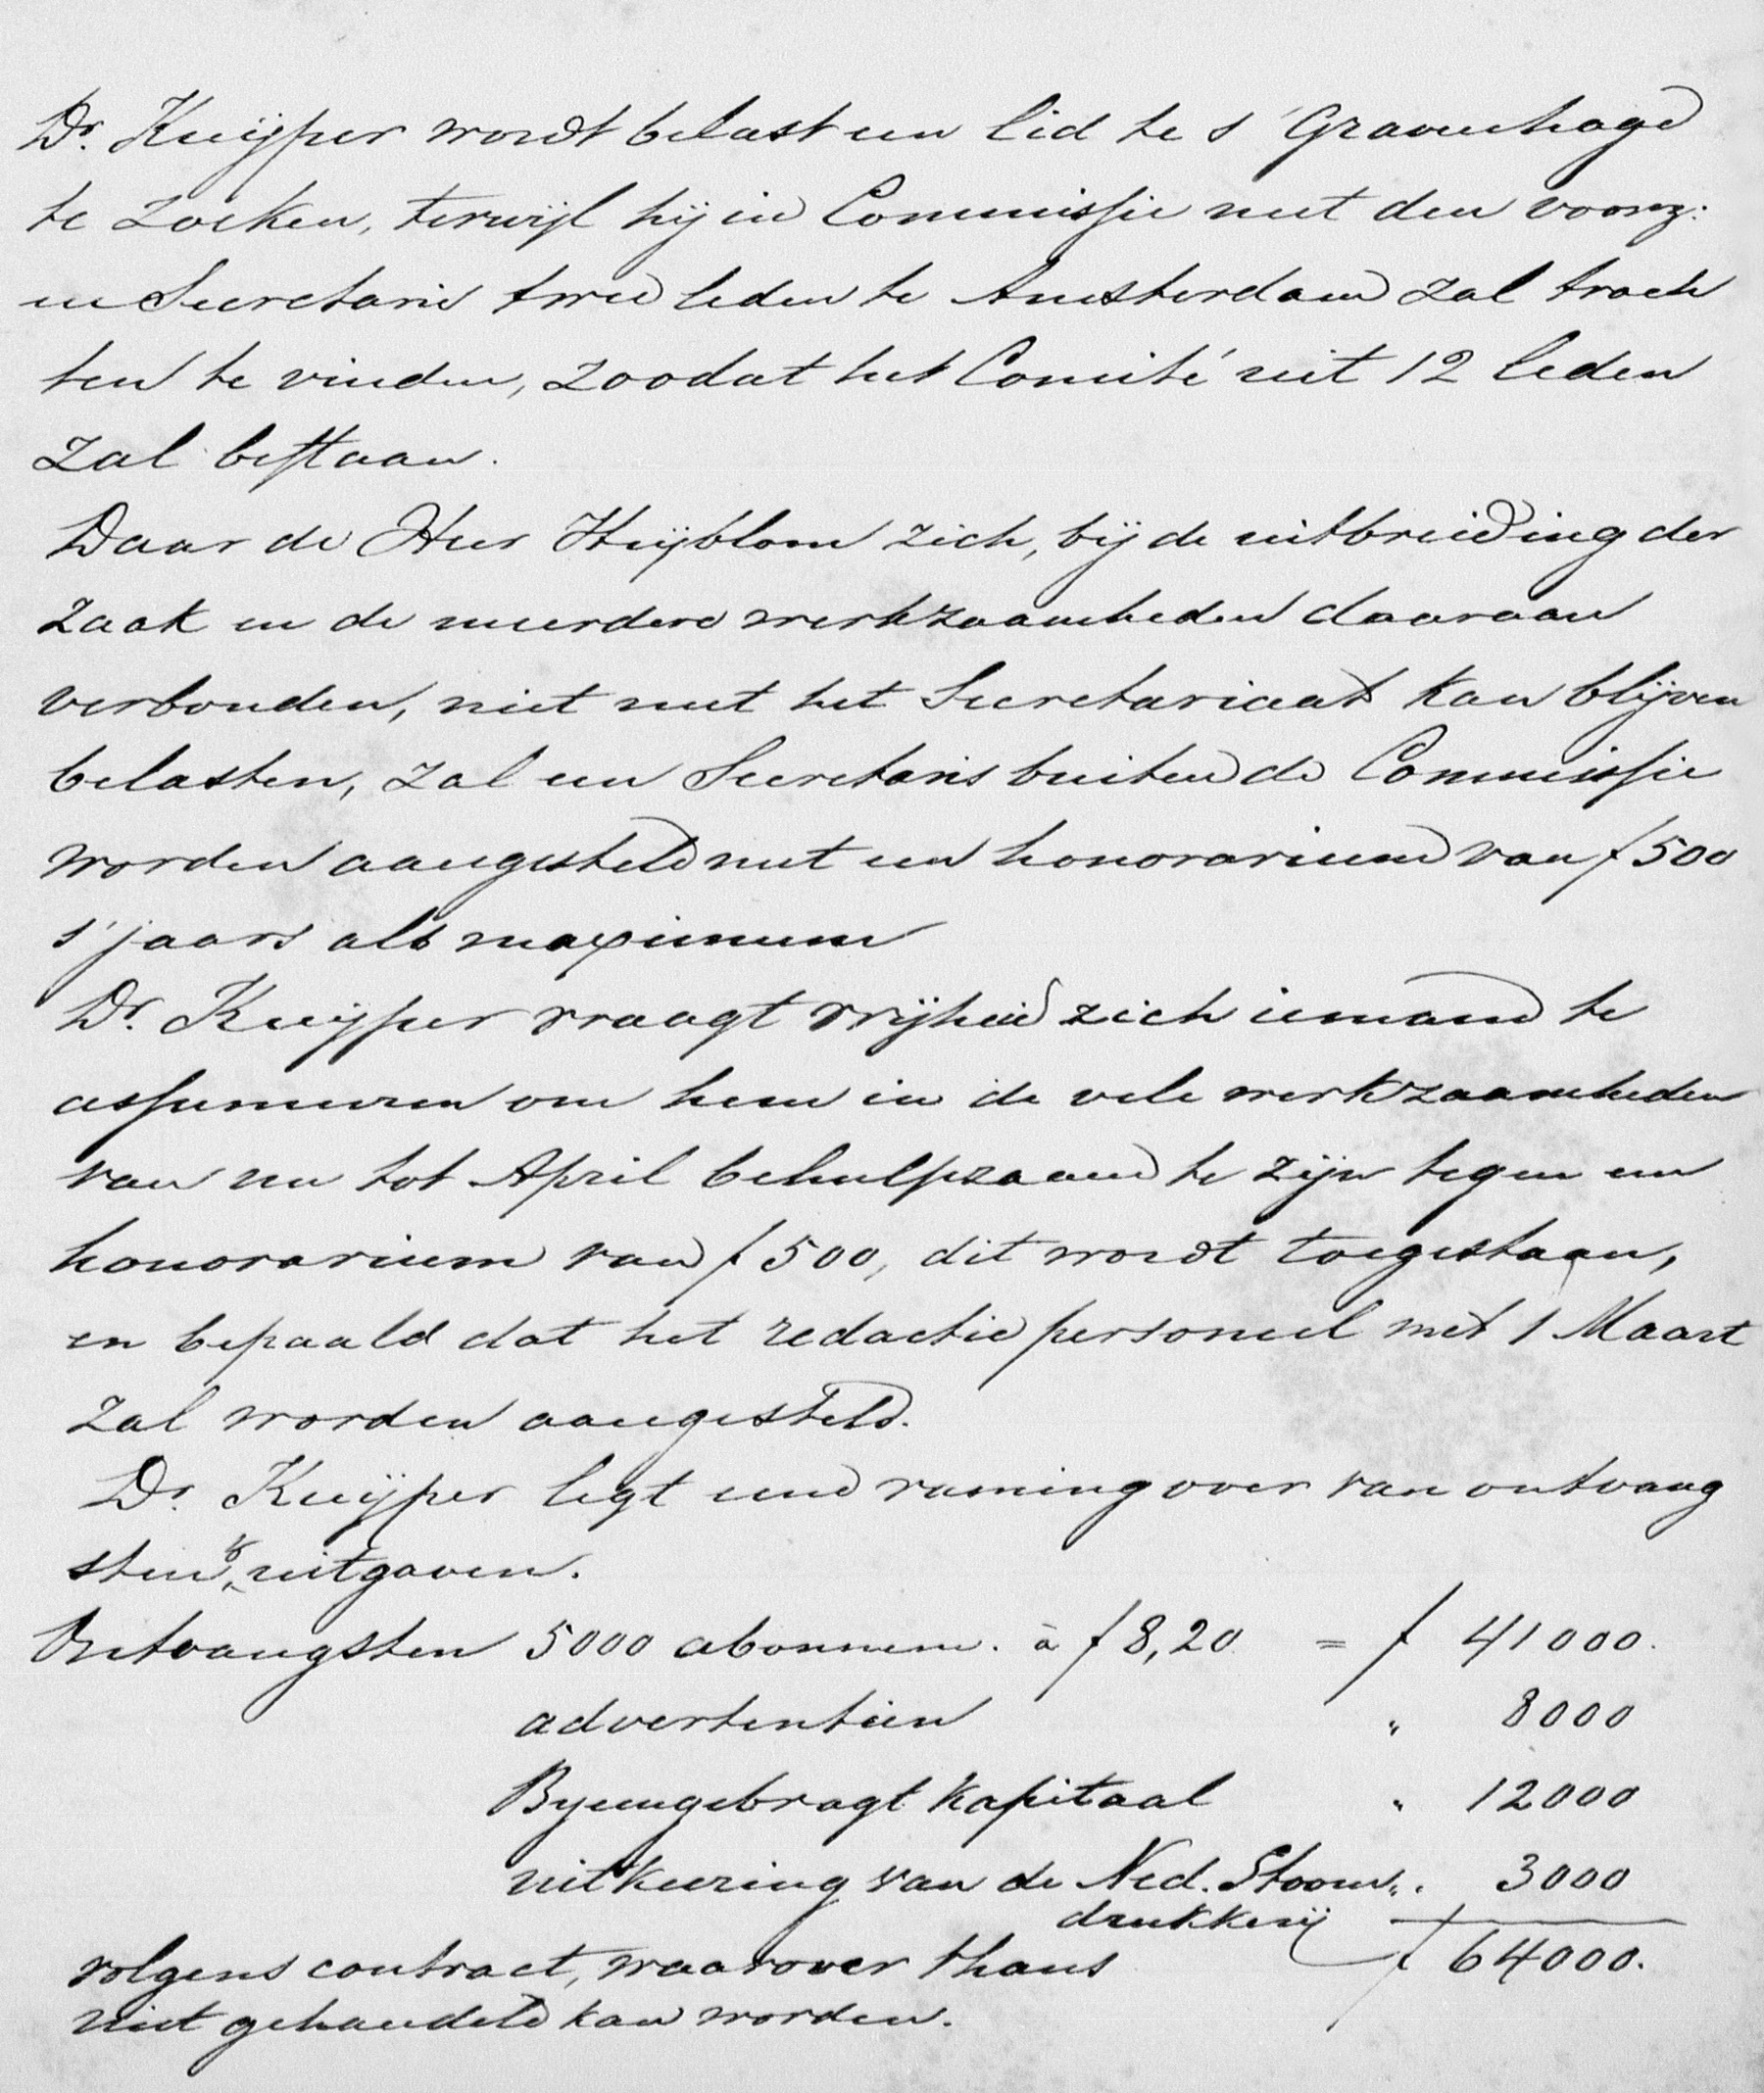 Dr. Kuijper wordt belast een lid te s' Gravenhage
te zoeken, terwijl hij in Commissie met den voorz:
en Secretaris twee leden te Amsterdam zal trach
ten te vinden, zoodat het Comité uit 12 leden
zal bestaan.
Daar de Heer Huijblom zich, bij de uitbreiding der
zaak en de meerdere werkzaamheden daaraan
verbonden, niet met het Secretariaat kan blijven
belasten, zal een Secretaris buiten de Commissie
worden aangesteld met een honorarium van f 500
s' jaars als maximum
Dr. Kuijper vraagt vrijheid zich iemand te
assumeeren om hem in de vele werkzaamheden
van nu tot April behulpzaam te zijn tegen een
honorarium van f 500, dit wordt toegestaan,
en bepaald dat het redactie personeel met 1 Maart
zal worden aangesteld.
Dr. Kuijper legt eene raming over van ontvang
sten & uitgaven.
Ontvangsten 5000 abonnem. à f 8,20 = f 41000.
advertentien " 8000
Byeengebragt kapitaal " 12000
uitkeering van de Ned. Stoom " 3000
drukkerij
volgens contract, waarover thans f 64000.
niet gehandeld kan worden.